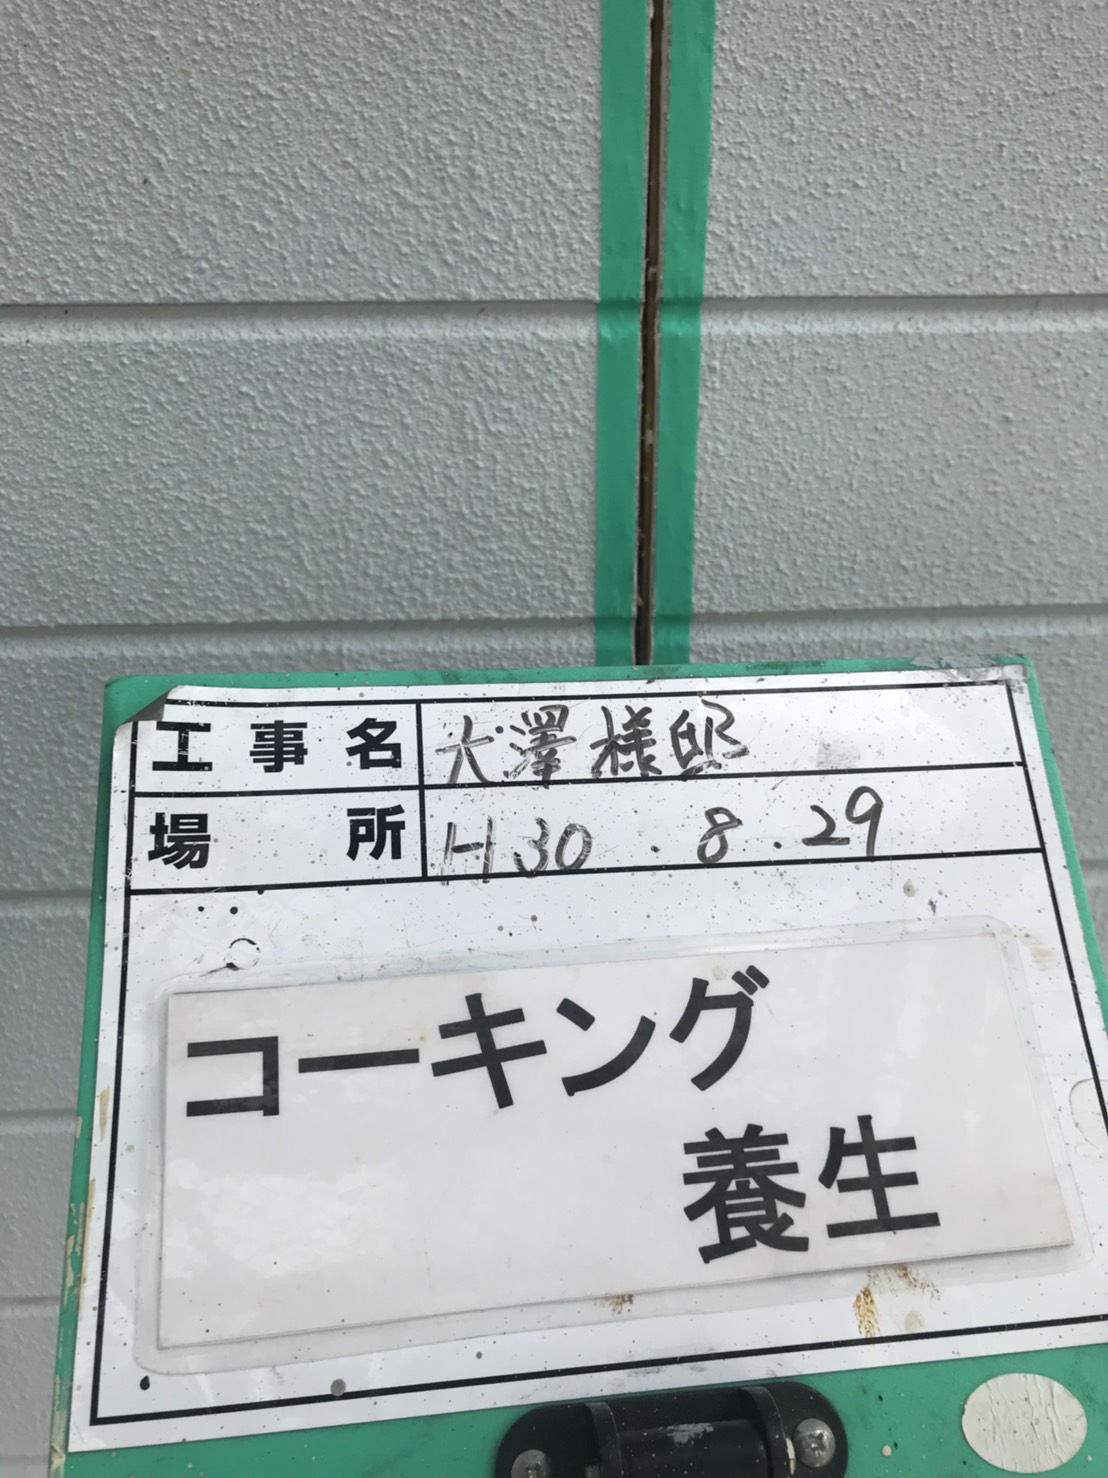 工事名 大澤様邸
場所 H30.8.29
コーキング
養生